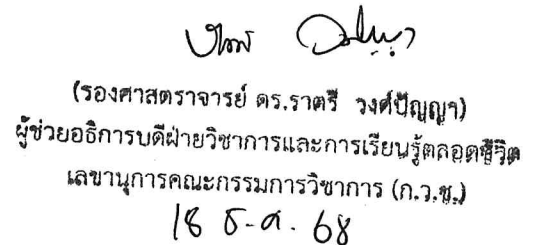 (รองศาสตราจารย์ ดร.ราตรี วงศ์ปัญญา)
ผู้ช่วยอธิการบดีฝ่ายวิชาการและการเรียนรู้ตลอดชีวิต
เลขานุการคณะกรรมการวิชาการ (ก.ว.ช.)
18 ธ.ค. 68